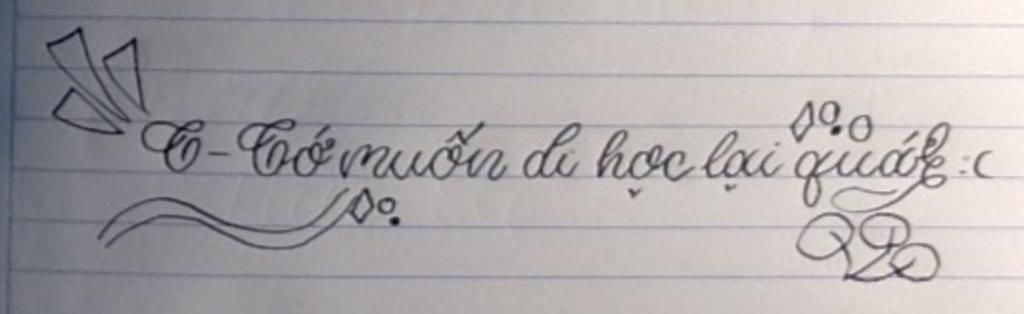 T-Tớ muốn đi học lại quá :(